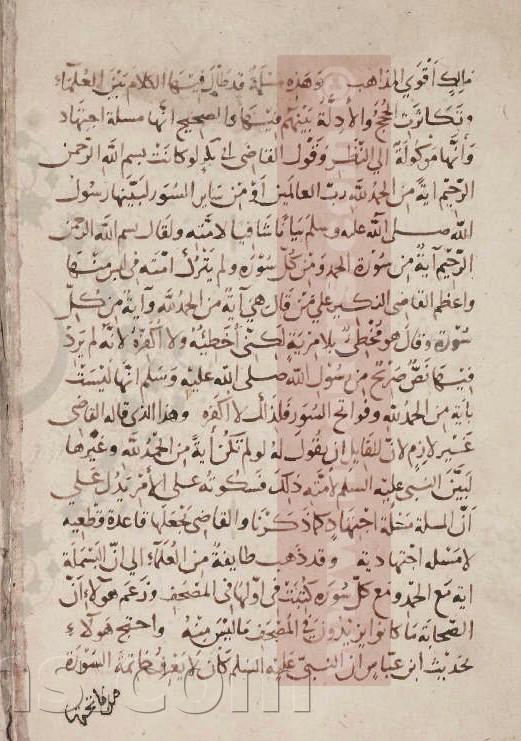 مالك أقوي المذاهب وهذه مسلة قد طال فيها الكلام بين العلماء
وتكاثرت الحجج والأدلة بينهم فيها والصحيح انها مسلة اجتهاد
وأنها موكولة الي النظر وقول القاضي لو كانت بسم الله الرحمن
الرحيم اية من الحمد لله رب العالمين أو من ساير السور لبينها رسول
الله صلى الله عليه وسلم بيانا شافيا لامته ولقال بسم الله الرحمن
الرحيم آية من سورة الحمد ومن كل سورة ولم يترك امته في لبس منها
واعظم القاضي النكير علي من قال هي آية من الحمد لله وآية من كل
سورة وقال هو مخطئ بلا مرية لكني أخطيه ولا اكفره لانه لم يرد
فيها نص صريح من رسول الله صلى الله عليه وسلم انها ليست
باية من الحمد لله وفواتح السور فلذلك لا اكفره وهذا الذي قاله القاضي
غير لازم لان للقايل ان يقول له لو لم تكن أية من الحمد لله وغيرها
لبين النبي عليه السلم لأمته ذلك فسكوته على الأمر يدل علي
أن المسلة محلة اجتهاد كما ذكرنا والقاضي يجعلها قاعدة قطعيه
لا مسله اجتهادية وقد ذهب طايفة من العلماء الي ان البسملة
اية مع الحمد ومع كل سورة كتبت في اولها في المصحف وزعم هولاء أن
الصحابة ما كانوا يزيدون في المصحف ما ليس منه واحتج هولاء
بحديث ابن عباس ان النبي عليه السلم كان لا يعرف خاتمة السورة
من فاتحتها
ns.com